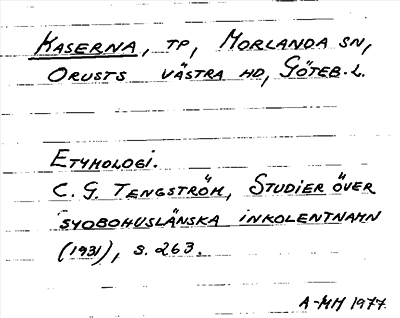 KASERNA, TP, MORLANDA SN,
ORUSTS VÄSTRA HD, GÖTEB. L.
ETYMOLOGI.
C. G. TENGSTRÖM, STUDIER ÖVER
SYDBOHUSLÄNSKA INKOLENTNAMN
(1931), S. 263.
A-MH 1977